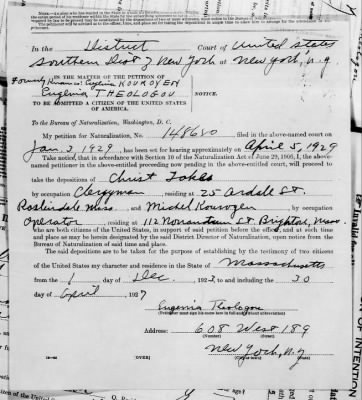 In the District Court of United States
Southern Dist of New York at New York, N.Y.
Formerly known as: Eugenia KOUKOYEN
IN THE MATTER OF THE PETITION OF
Eugenia THEOLOGOU
NOTICE.
TO BE ADMITTED A CITIZEN OF THE UNITED STATES
OF AMERICA.
To the Bureau of Naturalization, Washington, D. C.
My petition for Naturalization, No. 148680 filed in the above-named court on
Jan. 3 1929, has been set for hearing approximately on April 5, 1929
Take notice, that in accordance with Section 10 of the Naturalization Act of June 29, 1906, I, the above-
named petitioner in the above-entitled proceeding now pending in the above-entitled court, will proceed to
take the depositions of Christ
by occupation Clergyman, residing at 25 Ardale St.
Roslindale, Mass and Michel
by occupation
operator, residing at 112 Nonantum St. Brighton, Mass.
who are both citizens of the United States, in support of said petition before the office, and at such time
and place as may be herein designated by the said District Director of Naturalization, upon notice from the
Bureau of Naturalization of said time and place.
The said depositions are to be taken for the purpose of establishing by the testimony of two citizens
of the United States my character and residence in the State of Massachusetts
from the 1 day of Dec, 1923, to and including the 30
day of April, 1927
Eugenia Theologou
(Petitioner must sign his name here in full without abbreviation)
Address: 608 West 189
(Number) (Street)
New York, N.Y
(City or town) (State)
(OVER)
OF INTENTION